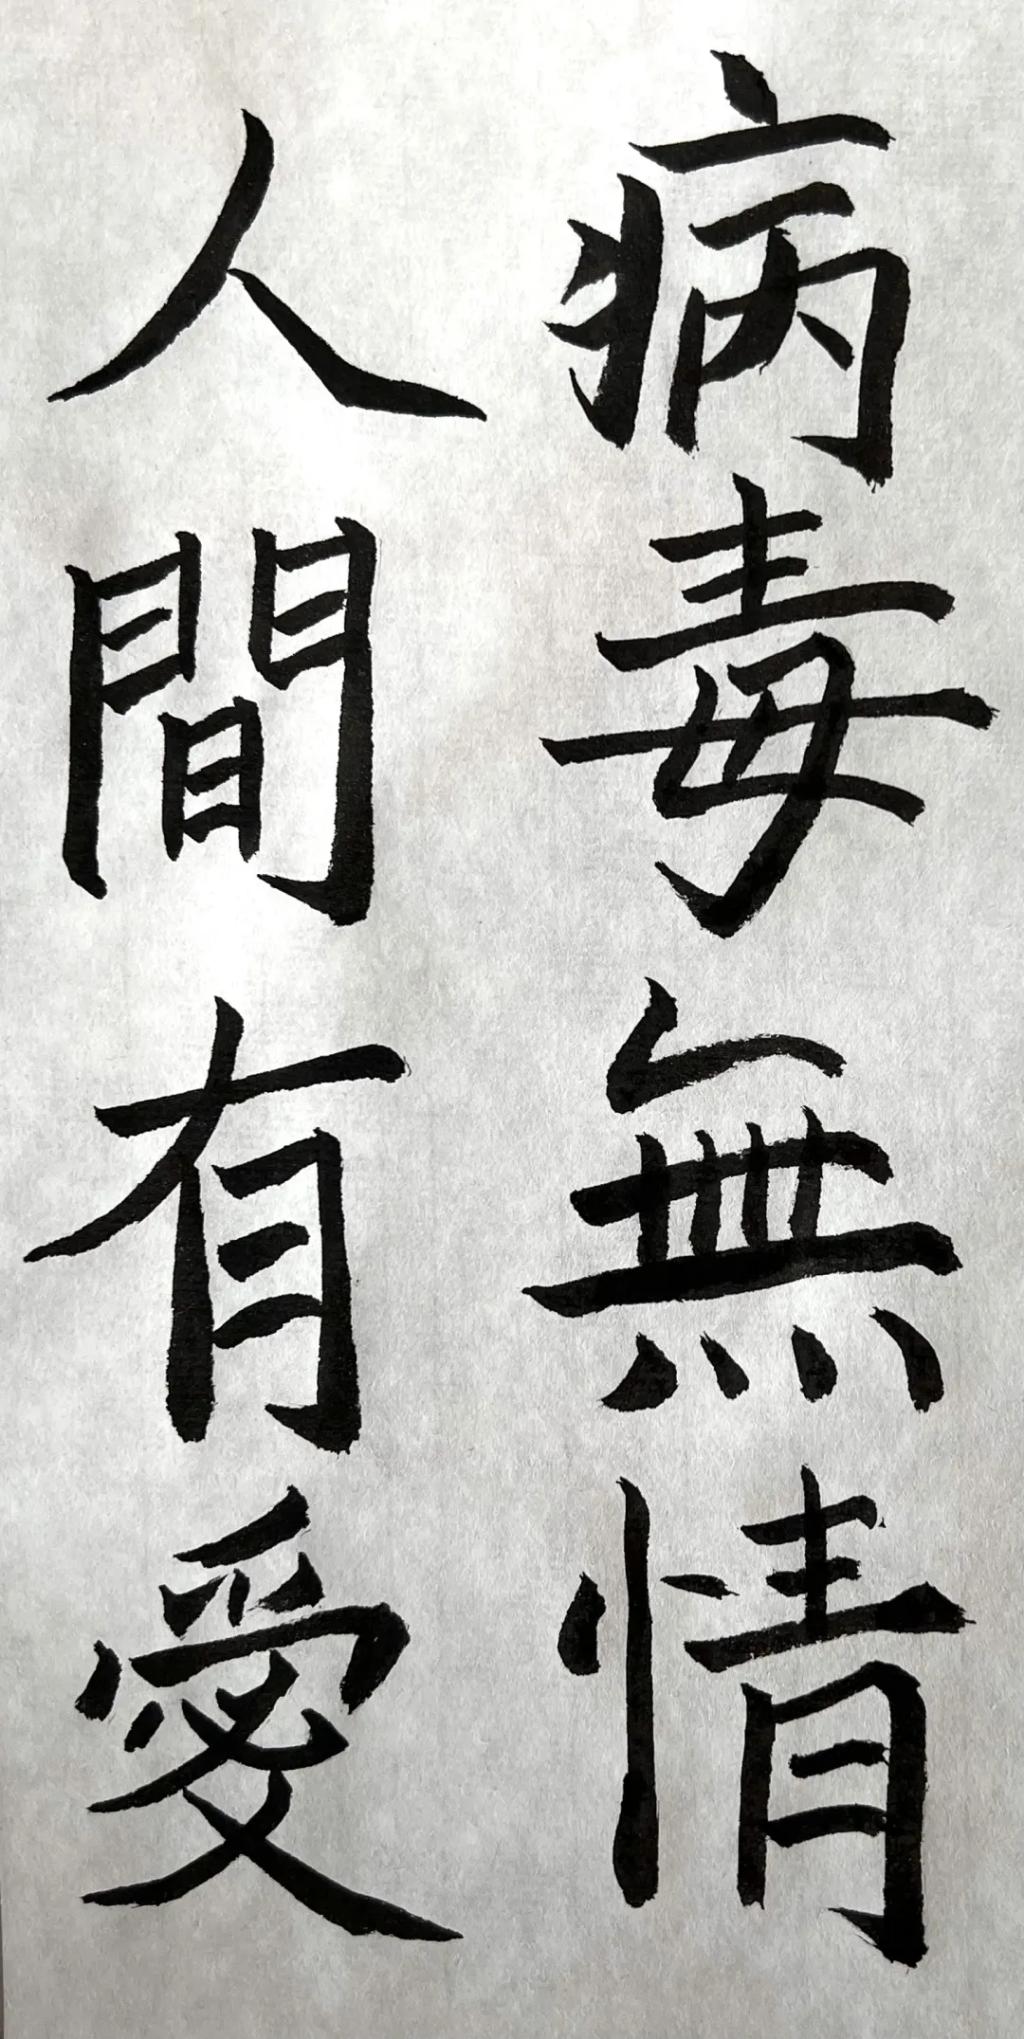 病毒無情
人間有愛